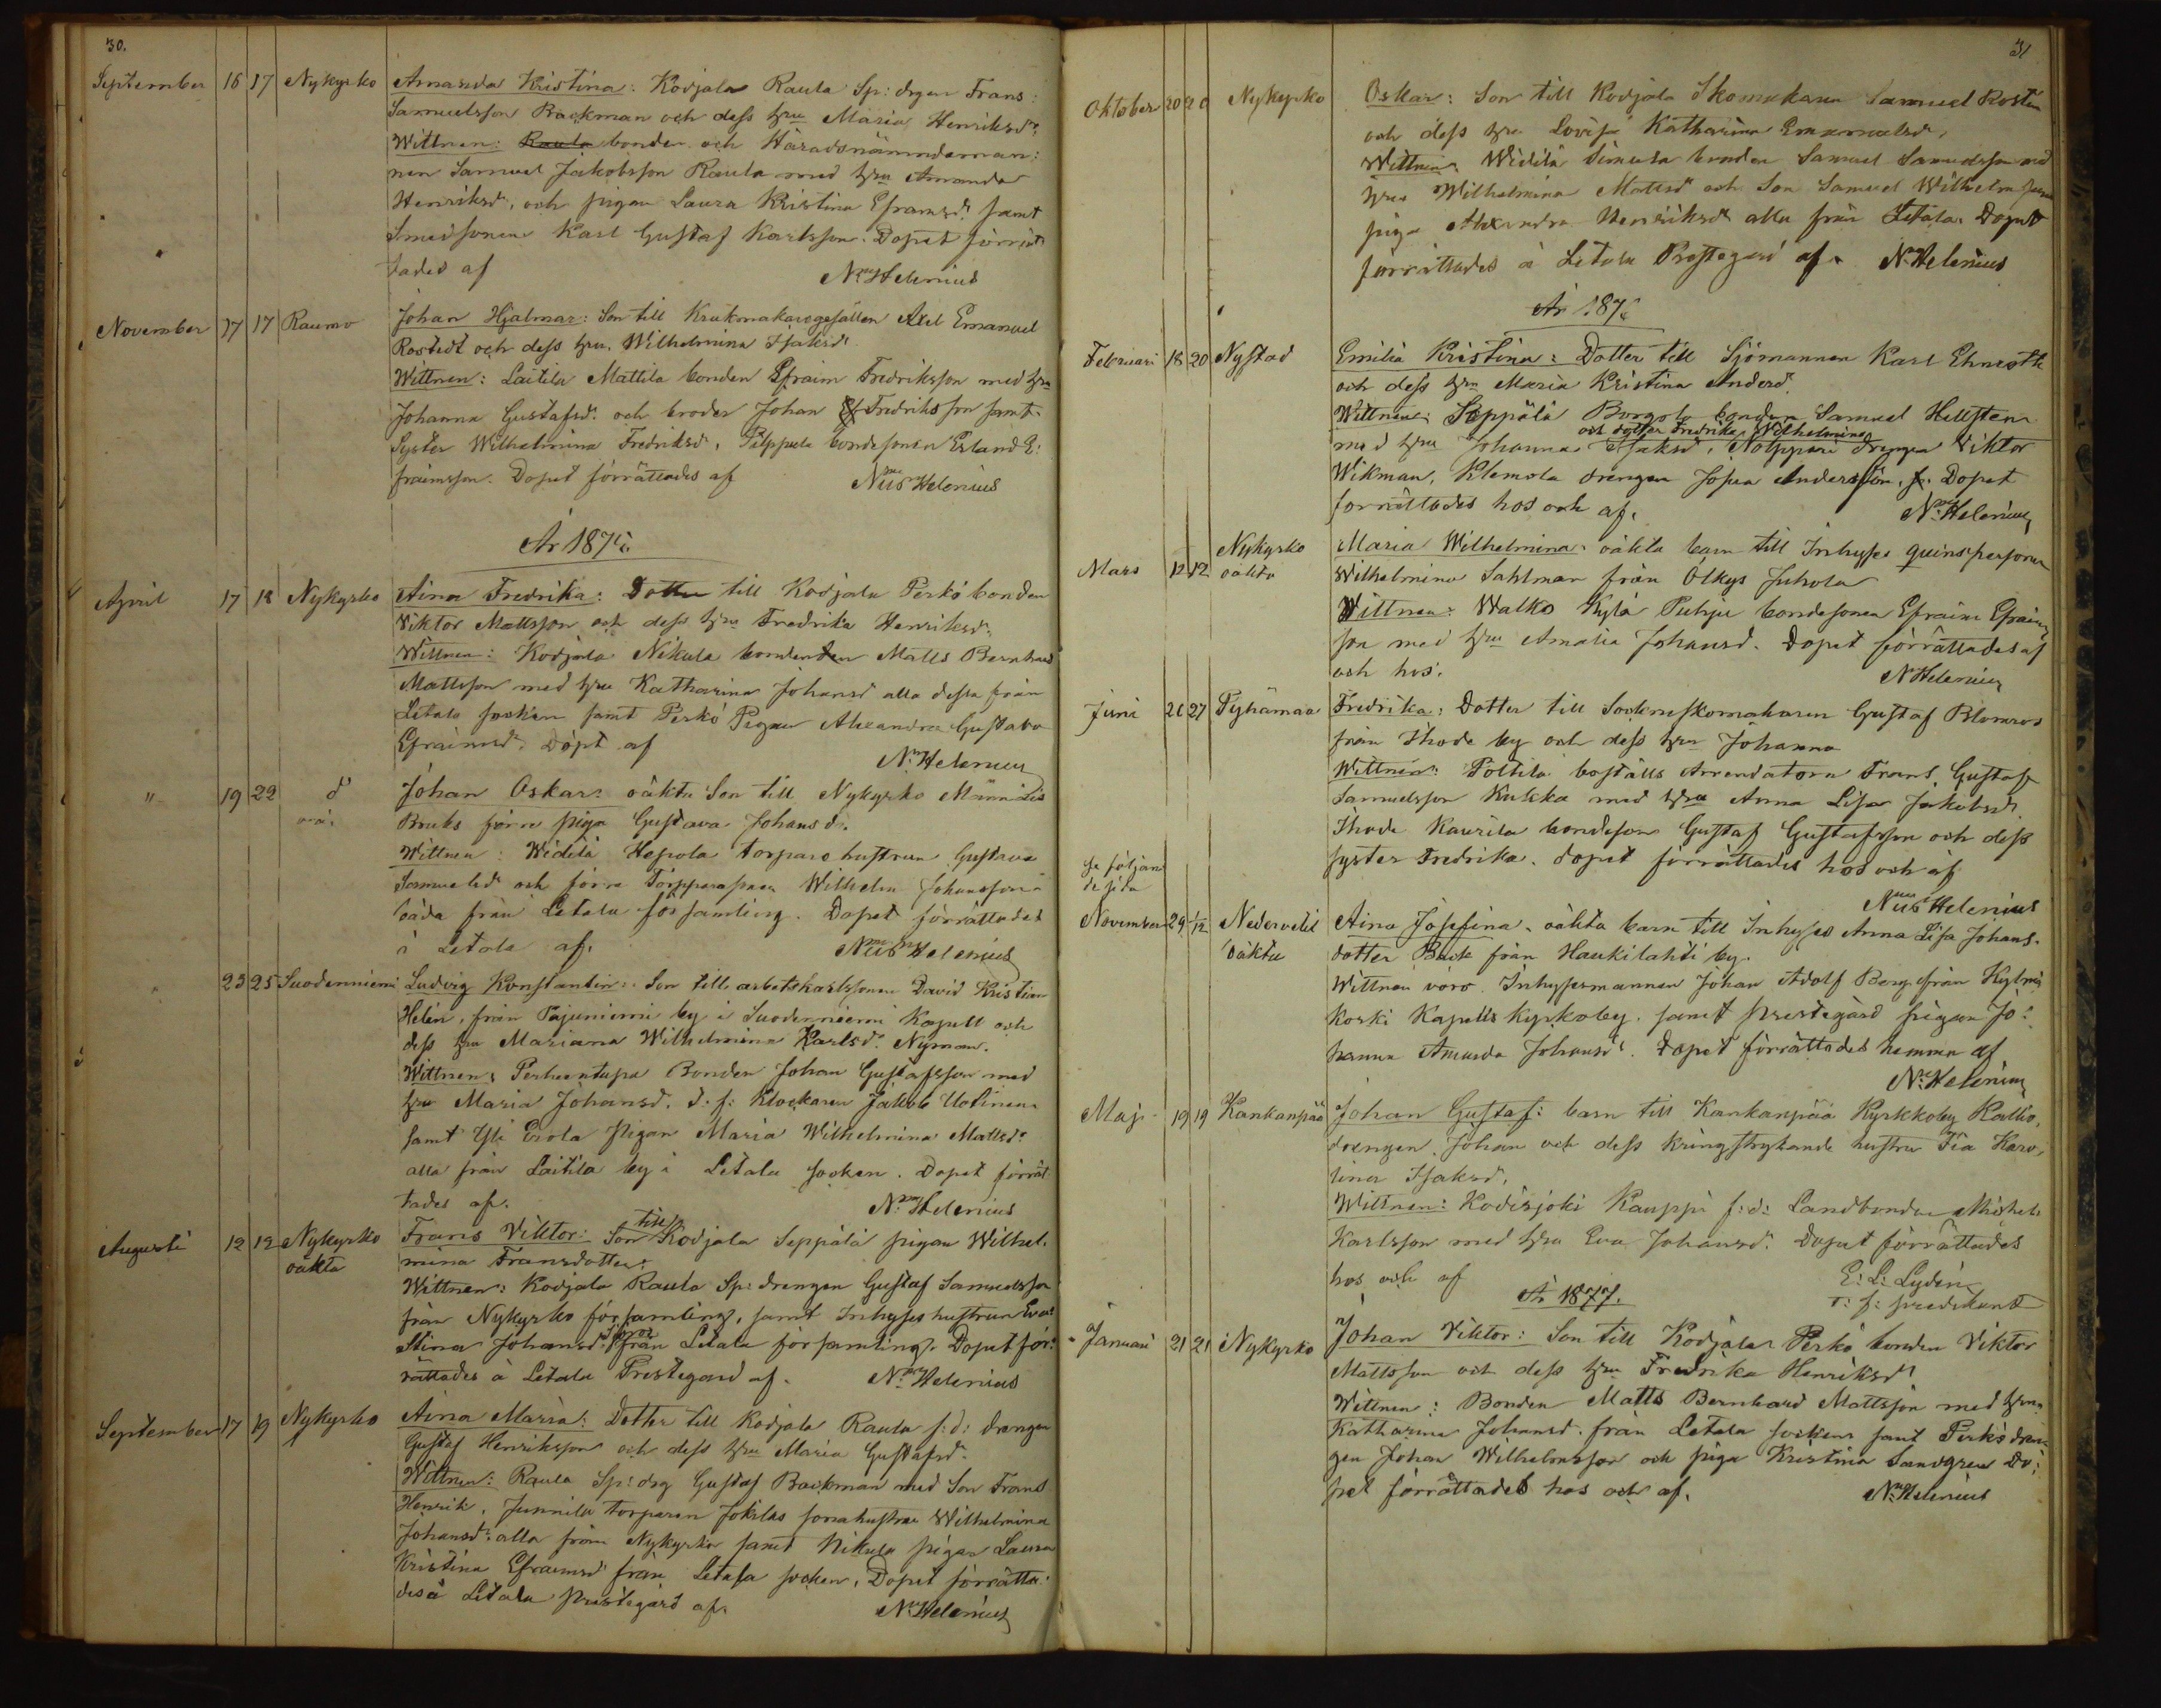 30.
September 16 17 Nykyrko Amanda Kristina: Kodjala Raula Sp: drgen Frans
Samuelsson Backman och dess hru Maria Henriksd:
Wittnen: Raula bonden och Häradsnämndeman:
nen Samuel Jakobsson Raula med hru Amanda
Henriksd, och pigan Laura Kristina Eframsd. samt
Smedsonen Karl Gustaf Karlsson. Dopet förrät
tades af Nm Helenius
November 17 17 Raumo Johan Hjalmar: Son till Krukmakaregesällen Axel Emanuel
Rostedt och dess hru. Wilhelmina Isaksd.
Wittnen: Laitila Mattila bonden Efraim Fredriksson med hru
Johanna Gustafsd. och broder Johan Fredriksson samt
Syster Wilhelmina Fredriksd, Pilppula bondesonen Erland E:
fraimsson. Dopet förrättades af Nils Helenius
År 1875.
April 17 18 Nykyrko Aina Fredrika: Dotter till Kodjala Perko bonden
Viktor Mattsson och dess hru Fredrika Henriksd.
Wittnen: Kodjala Nikula bonden Matts Bernhard
Mattsson med hru Katharina Johansd alla dessa från
Letala socken samt Perko Pigan Alexandra Gustava
Efraimsd. Döpt af Nm Helenius
" 19 22 d:o oä. Johan Oskar: oäkta Son till Nykyrko Männäis
Bruks förre piga Gustava Johansd.
Wittnen: Widilä Hepola torpare hustrun Gustava
Samuelsd och förre Torpparesonen Wilhelm Johansson
båda från Letala församling. Dopet förrättades
i Letala af. Nils Helenius
23 25 Suodenniemi Ludvig Konstantin: Son till arbetskarlssonen David Kristian
Helin, från Pajuniemi by i Suodenniemi Kapell och
dess hru Mariana Wilhelmina Karlsd. Nyman.
Wittnen: Perheentupa Bonden Johan Gustafsson med
hru Maria Johansd. d. f: Klockaren Jakob Uotinen
samt Yli Erola Pigan Maria Wilhelmina Mattsd.
alla från Laitila by i Letala socken. Dopet förrät
tades af. Nm Helenius
Augusti 12 12 Nykyrko oäkta Frans Viktor: Son till Kodjala Seppälä pigan Wilhel.
mina Fransdotter.
Wittnen: Kodjala Raula Sp: drengen Gustaf Samuelsson
från Nykyrko församling, samt Inhyses hustrun Eva
Stina Johansd. från Letala församling. Dopet för:
rättades å Letala Prestegård af. Nm Helenius
September 17 19 Nykyrko Aina Maria: Dotter till Kodjala Raula f: d: drengen
Gustaf Henriksson och dess hru Maria Gustafsd.
Wittnen: Raula Sp: drg Gustaf Backman med Son Frans
Henrik, Junnila torparen Jokilas sonahustru Wilhelmina
Johansd: alla från Nykyrko samt Nikula pigan Laura
Kristina Efraimsd från Letala socken. Dopet förrätta:
des å Letala prestegård af. Nm Helenius
31
Oktober 20 20 Nykyrko Oskar: Son till Kodjala Skomakaren Samuel Rostén
och dess hru Lovisa Katharina Emanuelsd,
Wittnen. Widilä Simula bonden Samuel Samuelsson med
hru Wilhelmina Mattsd och Son Samuel Wilhelm samt
piga Alexandra Henriksd alla från Letala. Dopet
förrättades å Letala Prestegård af. N. Helenius
År 1876
Februari 18 20 Nystad Emilia Kristina: Dotter till Sjömannen Karl Ehnroth
och dess hru Maria Kristina Andersd.
Wittnen: Seppälä Borgola bonden Samuel Hellsten
och dotter Fredrika Wilhelmina
med hru Johanna Isaksd, Nolppare drengen Viktor
Wikman, Klemola drengen Josua Andersson. Dopet
förrättades hos och af. Nm Helenius
Mars 12 12 Nykyrko oäkta Maria Wilhelmina: oäkta barn till Inhyses qvinsperson
Wilhelmina Sahlman från Ölkys Juhola
Wittnen: Walko Kylä Puhju bondesonen Efraim Efraims
son med hru Amalia Johansd. Dopet förrättades af
och hos. N Helenius
Juni 26 27 Pyhämaa Fredrika: Dotter till Sockneskomakaren Gustaf Blomros
från Ihode by och dess hru Johanna
Wittnen: Poltila boställs Arrendatorn Frans Gustaf
Samuelsson Kukka med hru Anna Lisa Jakobsd,
Ihode Kaurila bondeson Gustaf Gustafsson och dess
syster Fredrika. dopet förrättades hos och af
Nils Helenius
Se följan
de sida
November 29 1/12 Nedervetil oäkta Aina Josefina. oäkta barn till Inhyses Anna Lisa Johans.
dotter Back från Haukilahti by.
Wittnen voro. Inhysesmannen Johan Adolf Berg från Kylmä
koski Kapells Kyrkoby. samt Prestegård pigan Jo:
hanna Amanda Johansd. Dopet förrättades hemma af
Nm Helenius
Maj 19 19 Kankanpää Johan Gustaf: barn till Kankanpää Kyrkkoby Kallio,
drengen. Johan och dess kringstrykande hustru Fia Karo,
lina Isaksd,
Wittnen: Kodisjoki Kauppi f: d: Landbonden Michel
Karlsson med hru Eva Johansd: Dopet förrättades
hos och af E: L: Lydén
T: f: predikant
År 1877.
Januari 21 21 Nykyrko Johan Viktor: Son till Kodjala Perko bonden Viktor
Mattsson och dess hru Fredrika Henriksd
Wittnen: Bonden Matts Bernhard Mattsson med hru
Katharina Johansd. från Letala socken samt Perko dren
gen Johan Wilhelmsson och piga Kristina Sandgren Do:
pet förrättades hos och af. Nm Helenius